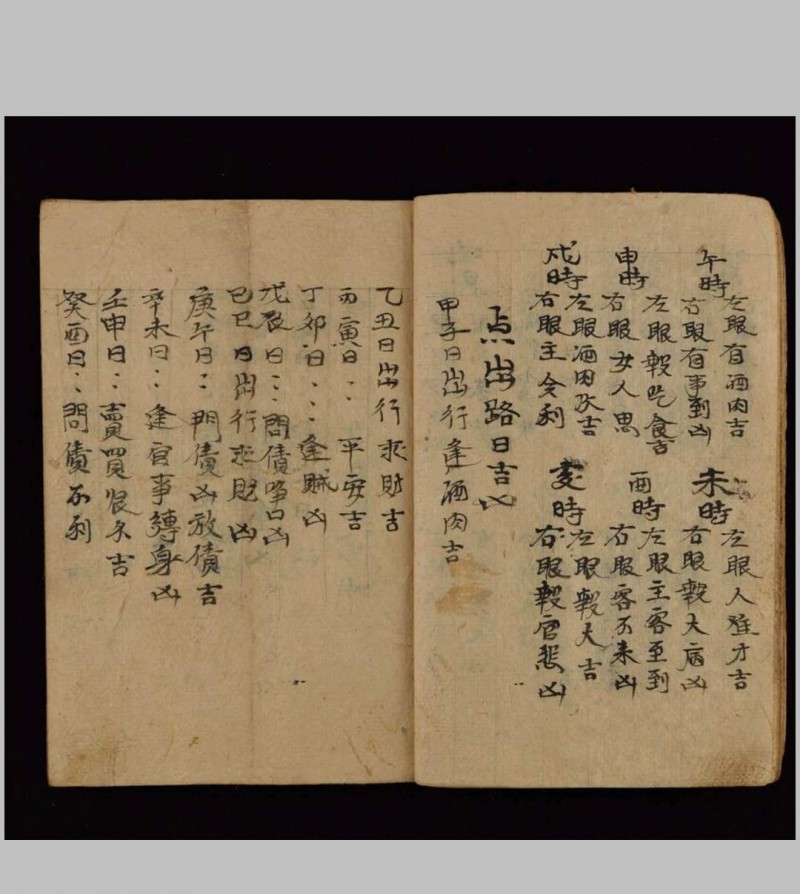 午時
左眼有酒肉吉
右眼有事到凶
申時
左眼報吃食吉
右眼女人思
戍時
左眼酒肉吉
右眼主令利
未時
左眼人难才吉
右眼報大病凶
酉時
左眼主客至到
右眼客不来凶
亥時
左眼報大吉
右眼報官悲凶
点出路日吉凶
甲子日出行逢酒肉吉
乙丑日出行求財吉
丙寅日：平安吉
丁卯日：逢賊凶
戊辰日：問債争口凶
己巳日出行求財凶
庚午日：門債凶放債吉
辛未日：逢官事縛身凶
壬申日：賣買吉
癸酉日：問債不利